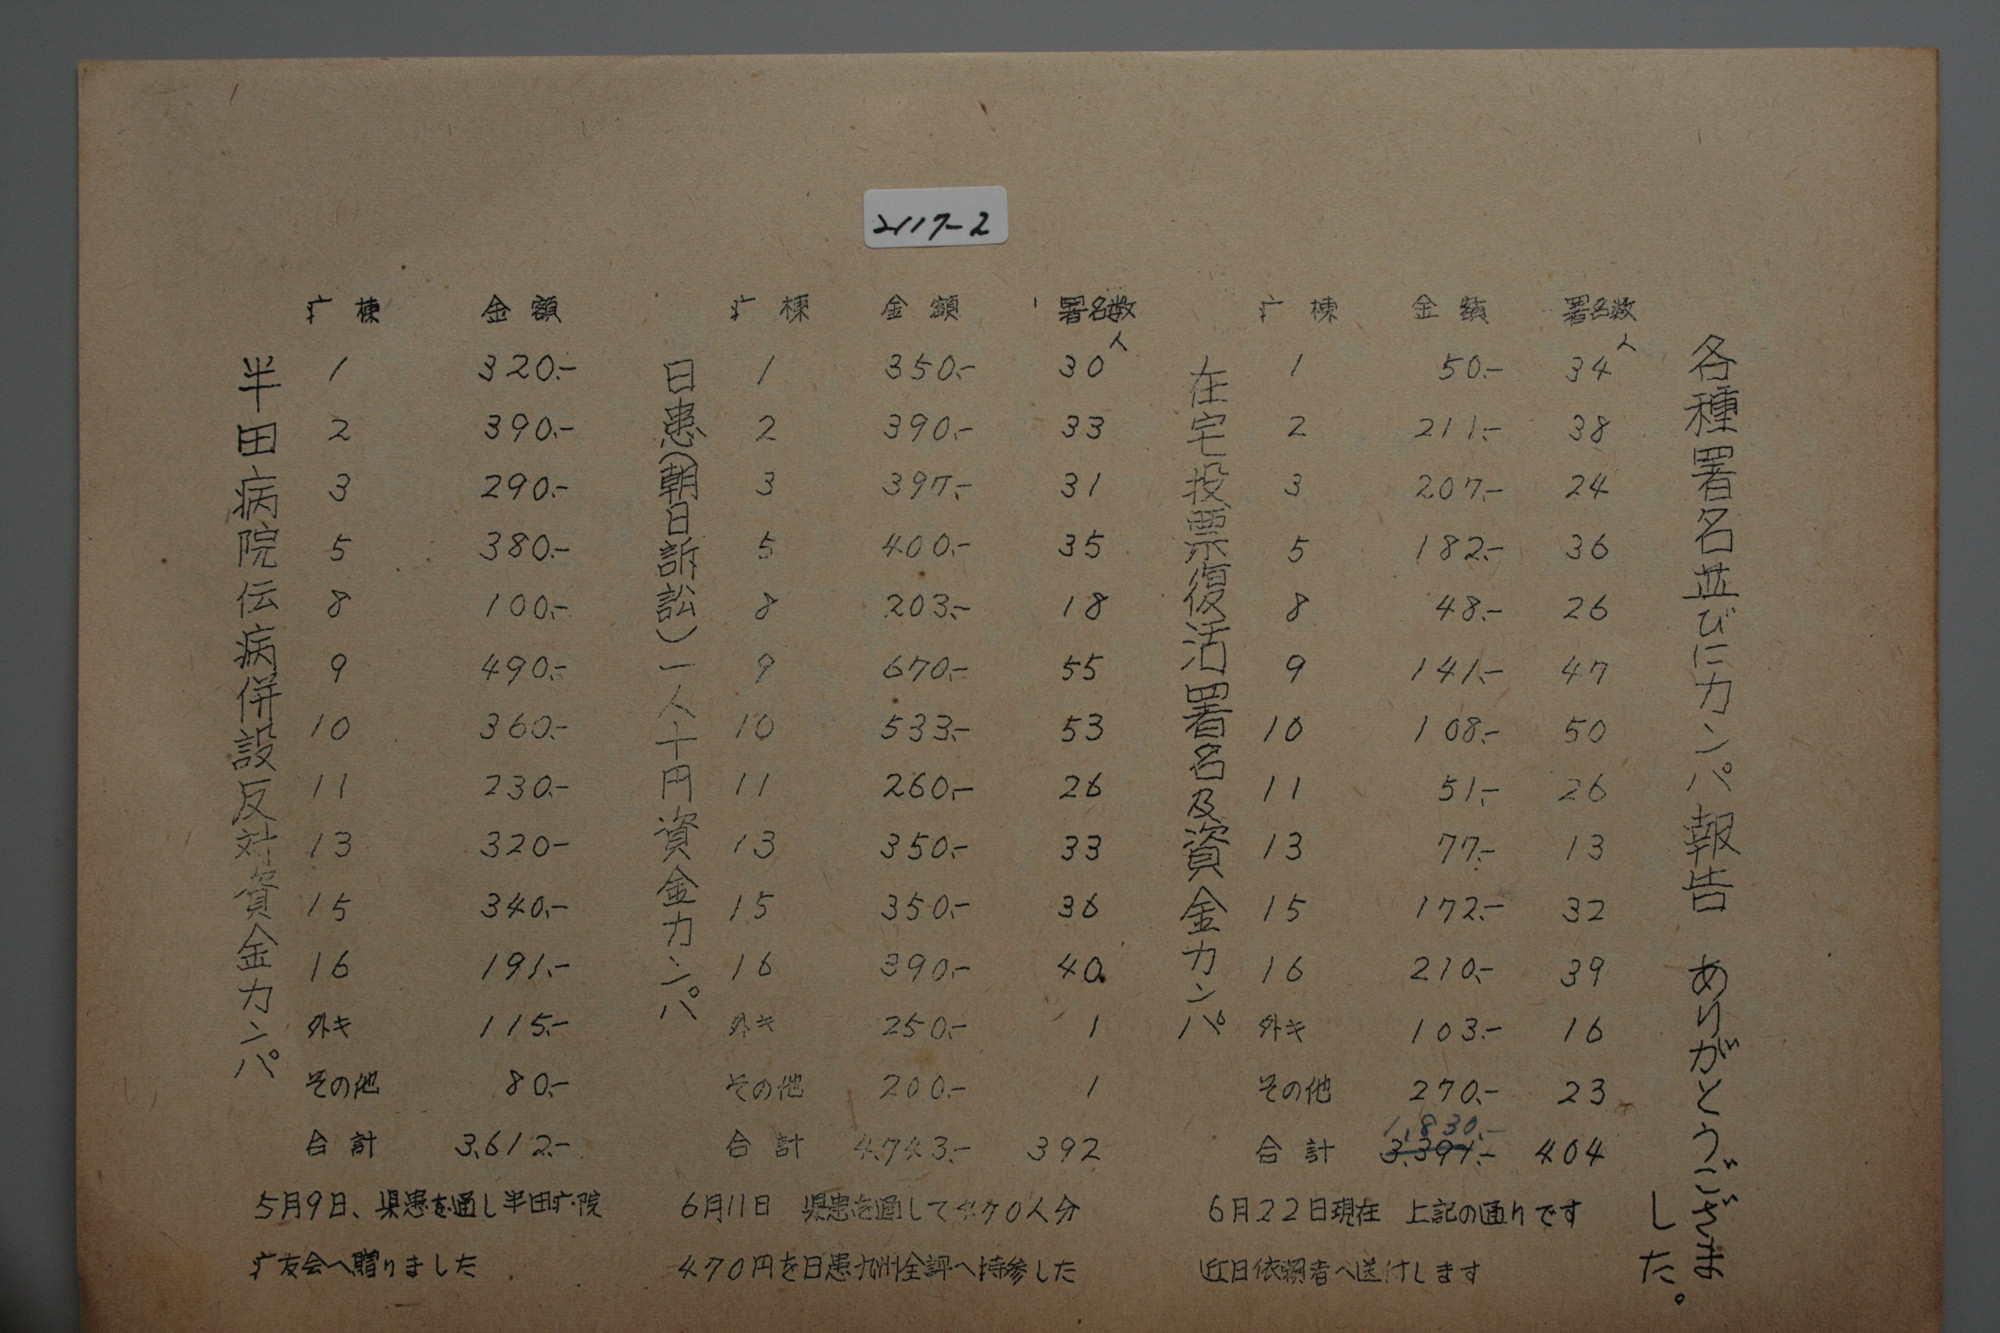 2117-2
各種署名並びにカンパ報告 ありがとうございま
した。
在宅投票復活署名及資金カンパ
疒棟 金額 署名数
1 50.- 34人
2 211.- 38
3 207.- 24
5 182.- 36
8 48.- 26
9 141.- 47
10 108.- 50
11 51.- 26
13 77.- 13
15 172.- 32
16 210.- 39
外キ 103.- 16
その他 270.- 23
1,830.-
合計 3,391.- 404
6月22日現在 上記の通りです
近日依頼者へ送付します
日患(朝日訴訟)一人十円資金カンパ
疒棟 金額 署名数
1 350.- 30人
2 390.- 33
3 397.- 31
5 400.- 35
8 203.- 18
9 670.- 55
10 533.- 53
11 260.- 26
13 350.- 33
15 350.- 36
16 390.- 40
外キ 250.- 1
その他 200.- 1
合計 4,743.- 392
6月11日 県患を通して470人分
470円を日患九州全評へ持参した
半田病院伝病併設反対資金カンパ
疒棟 金額
1 320.-
2 390.-
3 290.-
5 380.-
8 100.-
9 490.-
10 360.-
11 230.-
13 320-
15 340.-
16 191.-
外キ 115.-
その他 80.-
合計 3,612.-
5月9日、県患を通し半田疒院
疒友会へ贈りました